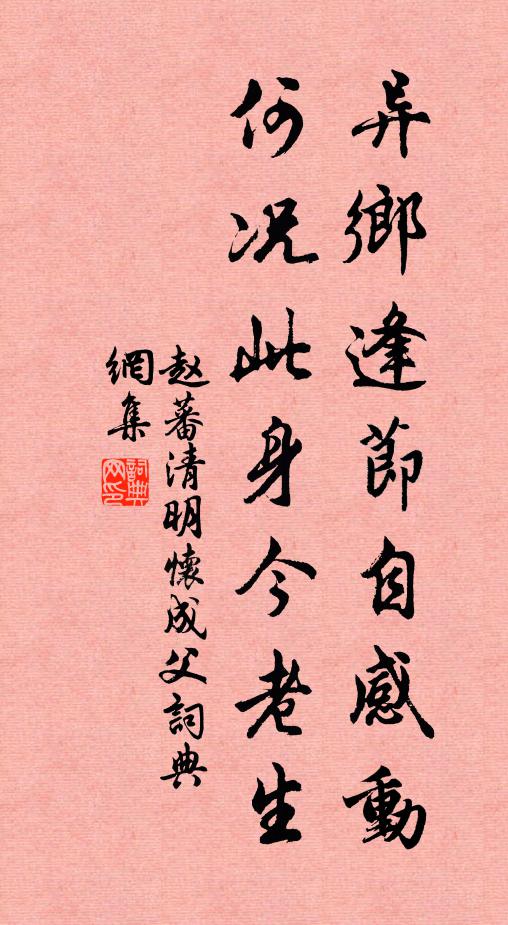 异鄉逢節自感動
何况此身今老生
赵蕃清明懷成父詞典
網集
詞典网印